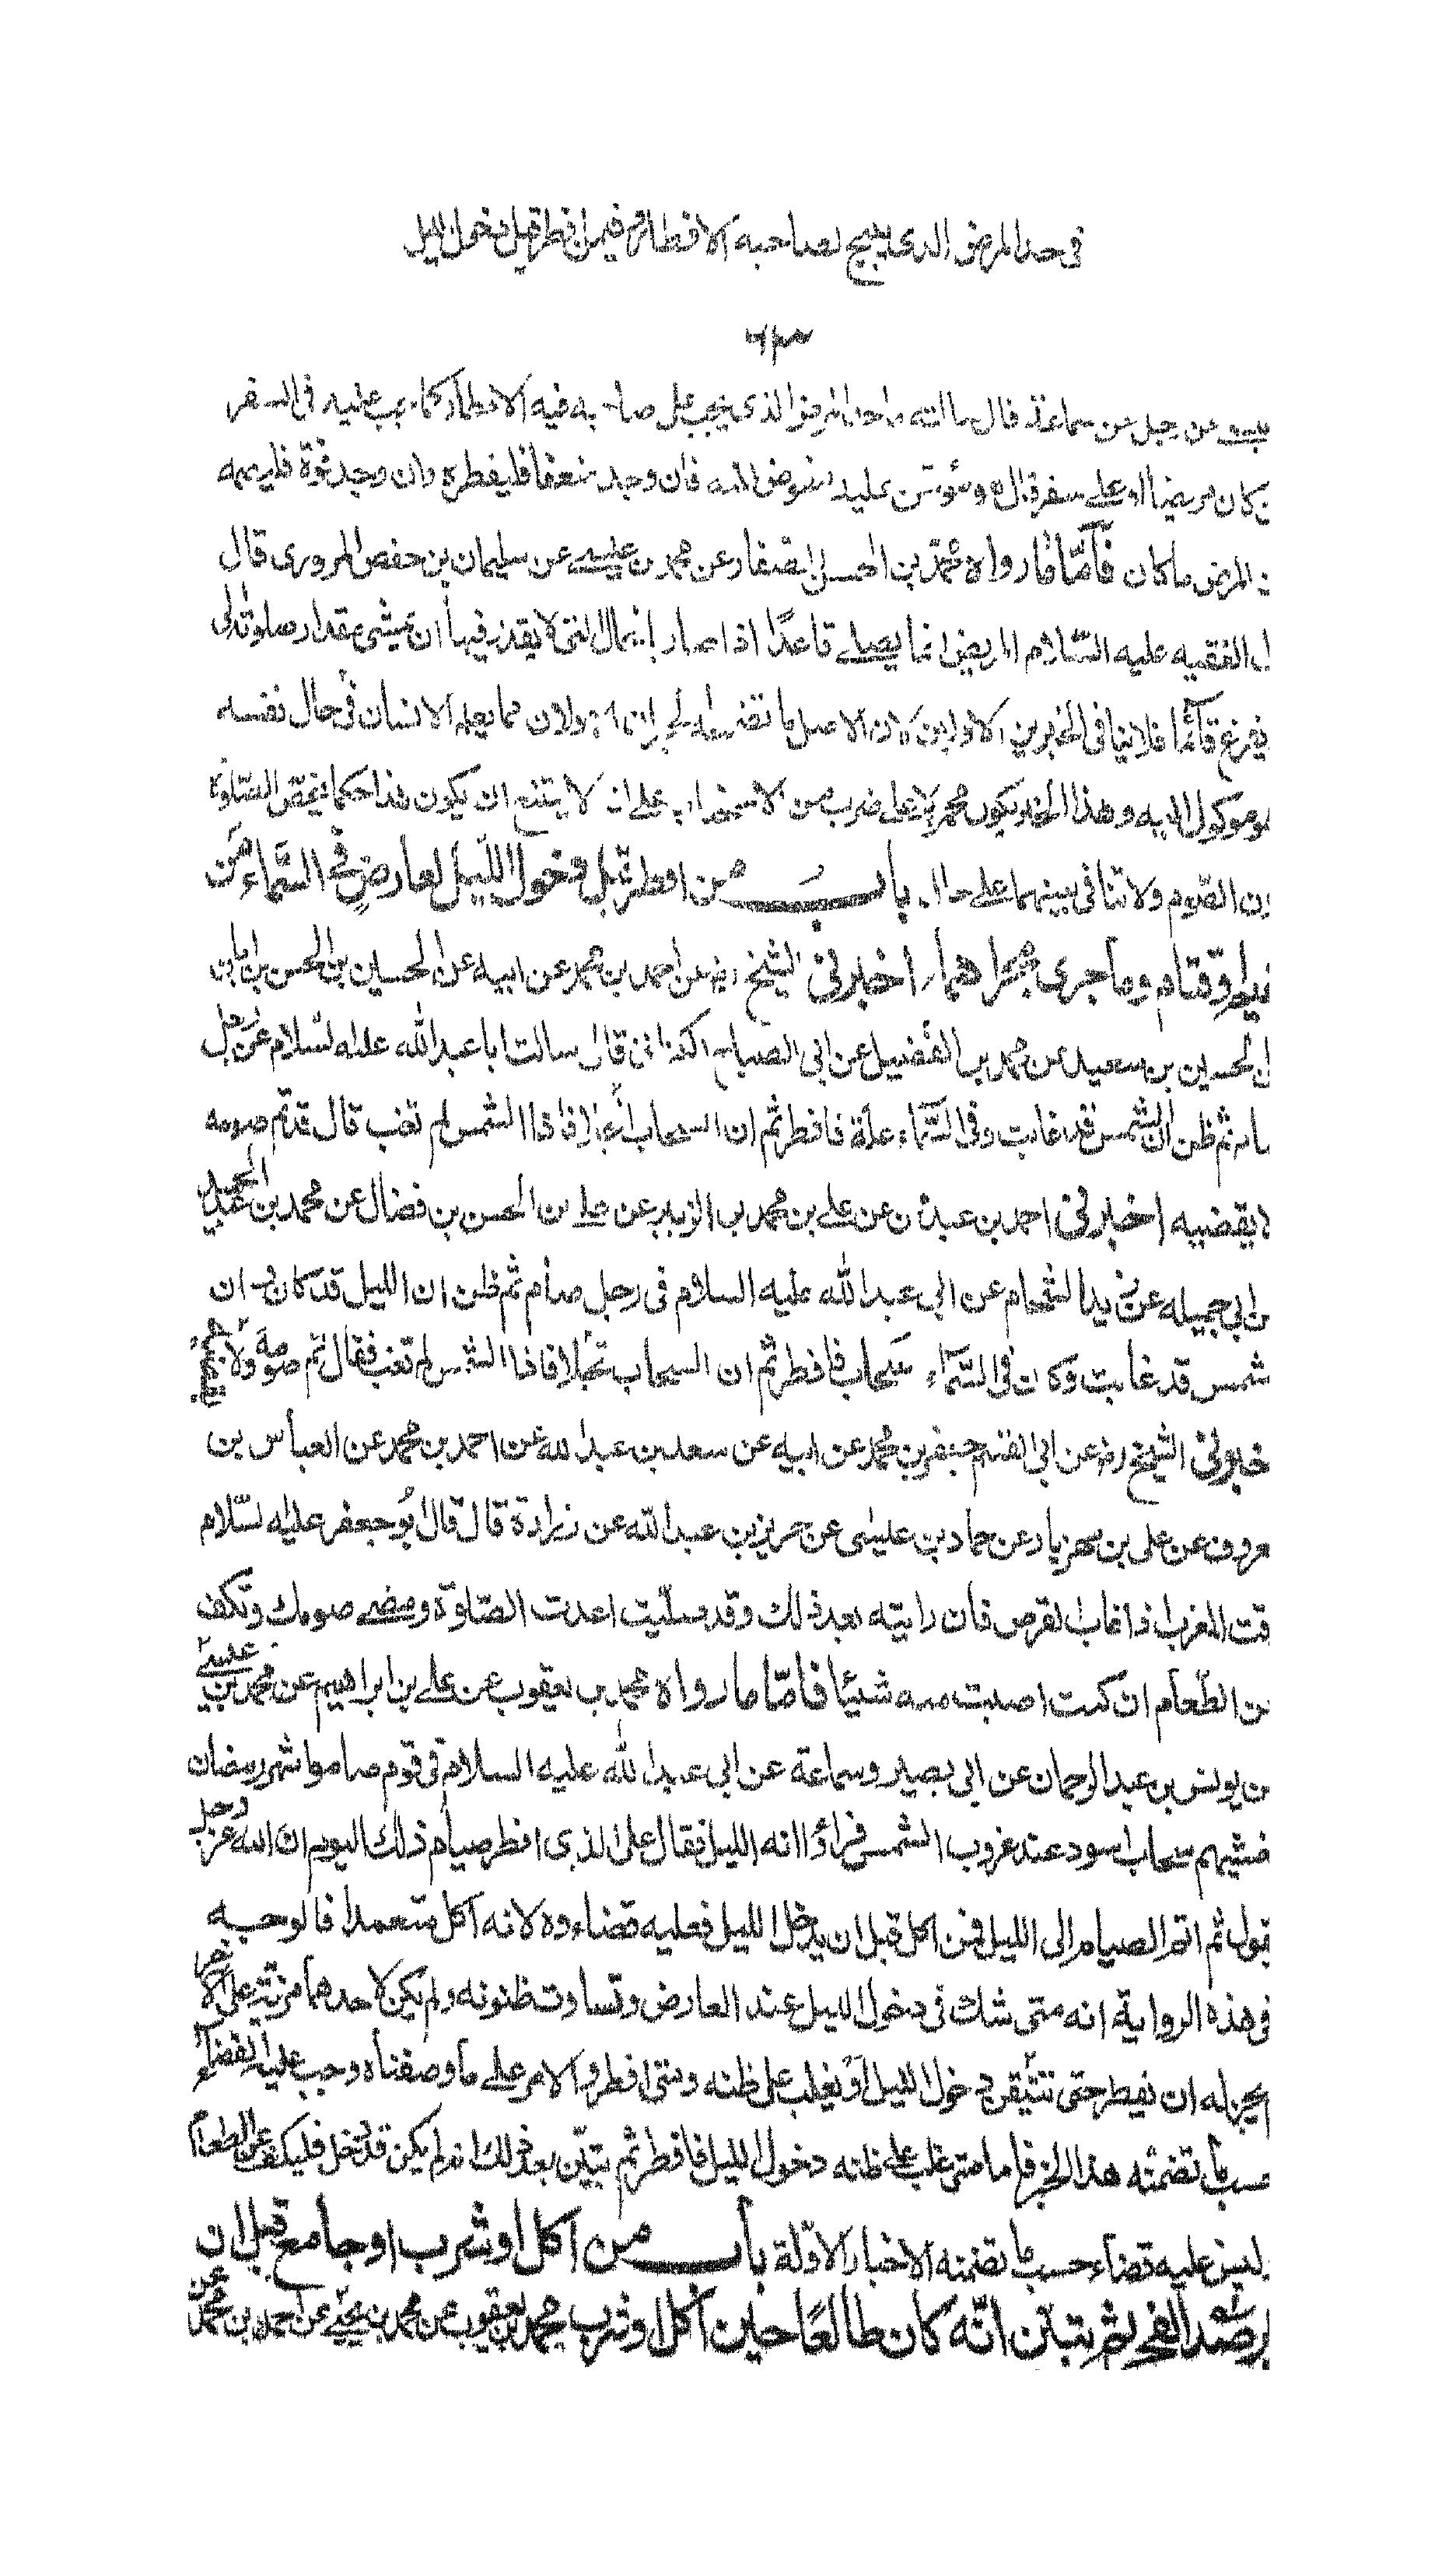 فى حد المرض الذى يبيح لصاحبه الافطار فيمن افطر قبل دخول الليل
عن سماعة قال سالته ما حد المرض الذى يجب على صاحبه فيه الافطار كما يجب عليه فى السفر
كان مريضا او على سفر قال هو مؤتمن عليه مفوض اليه فان وجد ضعفا فليفطر وان وجد قوة فليصمه
المرض ما كان فأمّا ما رواه محمّد بن الحسن الصفار عن محمد بن عيسى عن سليمان بن حفص المروزى قال
الفقيه عليه السّلام المريض انما يصلى قاعدًا اذا صار بالحال التى لا يقدر فيها ان يمشى مقدار صلوته الى
يفرغ قائما فلا ينافى الخبرين الاولين لان الاصل ما تضمنه الخبران الاولان مما يعلم الانسان فى حال نفسه
موكول اليه وهذا الخبر يكون محمولا على ضرب من الاستحباب على انه لا يمتنع ان يكون هذا حكما يخص الصّلوة
دون الصّوم ولا تنافى بينهما على حال باب من افطر قبل دخول اللّيل لعارضٍ فى السّماء من
غيم او قتام وما جرى مجراهما اخبرنى الشيخ ره عن احمد بن محمد عن ابيه عن الحسين بن الحسن بن ابان
عن الحسين بن سعيد عن محمد بن الفضيل عن ابى الصباح الكنانى قال سالت ابا عبد الله عليه السّلام عن رجل
صام ثم ظن ان الشمس قد غابت وفى السّماء علة فافطر ثم ان السحاب انجلا فاذا الشمس لم تغب قال قد تم صومه
لا يقضيه اخبرنى احمد بن عبدون عن على بن محمد بن الزبير عن على بن الحسن بن فضال عن محمد بن عبد الحميد
عن ابى جميله عن زيد الشحام عن ابى عبد الله عليه السلام فى رجل صائم ثم ظن ان الليل قد كان وان
شمس قد غابت وكان فى السّماء سحاب فافطر ثم ان السحاب تجلا فاذا الشمس لم تغب فقال تم صومه ولا يقضيه
خبرنى الشيخ ره عن ابى القسم جعفر بن محمد عن ابيه عن سعد بن عبد الله عن احمد بن محمد عن العباس بن
معروف عن على بن مهزيار عن حماد بن عيسى عن حريز بن عبد الله عن زرارة قال قال ابو جعفر عليه السّلام
وقت المغرب اذا غاب القرص فان رايته بعد ذلك وقد صلّيت اعدت الصّلوة ومضى صومك وتكف
عن الطّعام ان كنت اصبت منه شيئا فامّا ما رواه محمد بن يعقوب عن على بن ابراهيم عن محمد بن عيسى
عن يونس بن عبد الرحمان عن ابى بصير وسماعة عن ابى عبد الله عليه السلام فى قوم صاموا شهر رمضان
فغشيهم سحاب اسود عند غروب الشمس فراؤا انه الليل فقال على الذى افطر صيام ذلك اليوم ان الله عز وجل
يقول ثم اتموا الصيام الى الليل فمن اكل قبل ان يدخل الليل فعليه قضاءه لانه اكل متعمدا فالوجه
فى هذه الرواية انه متى شك فى دخول الليل عند العارض وتساوت ظنونه ولم يكن لاحدهما مزية على الاخر
لم يجز له ان يفطر حتى يتيقن دخول الليل او يغلب على ظنه ومتى افطر والامر على ما وصفناه وجب عليه القضاء
حسب ما تضمنه هذا الخبر فاما متى غلب على ظنه دخول الليل فافطر ثم تبيّن بعد ذلك انه لم يكن قد دخل فليكف عن الطعام
وليس عليه قضاء حسب ما تضمنه الاخبار الاوّلة باب من اكل او شرب او جامع قبل ان
يرصد الفجر ثم تبيّن انّه كان طالعًا حين اكل او شرب محمد بن يعقوب عن محمد بن يحيى عن احمد بن محمد عن